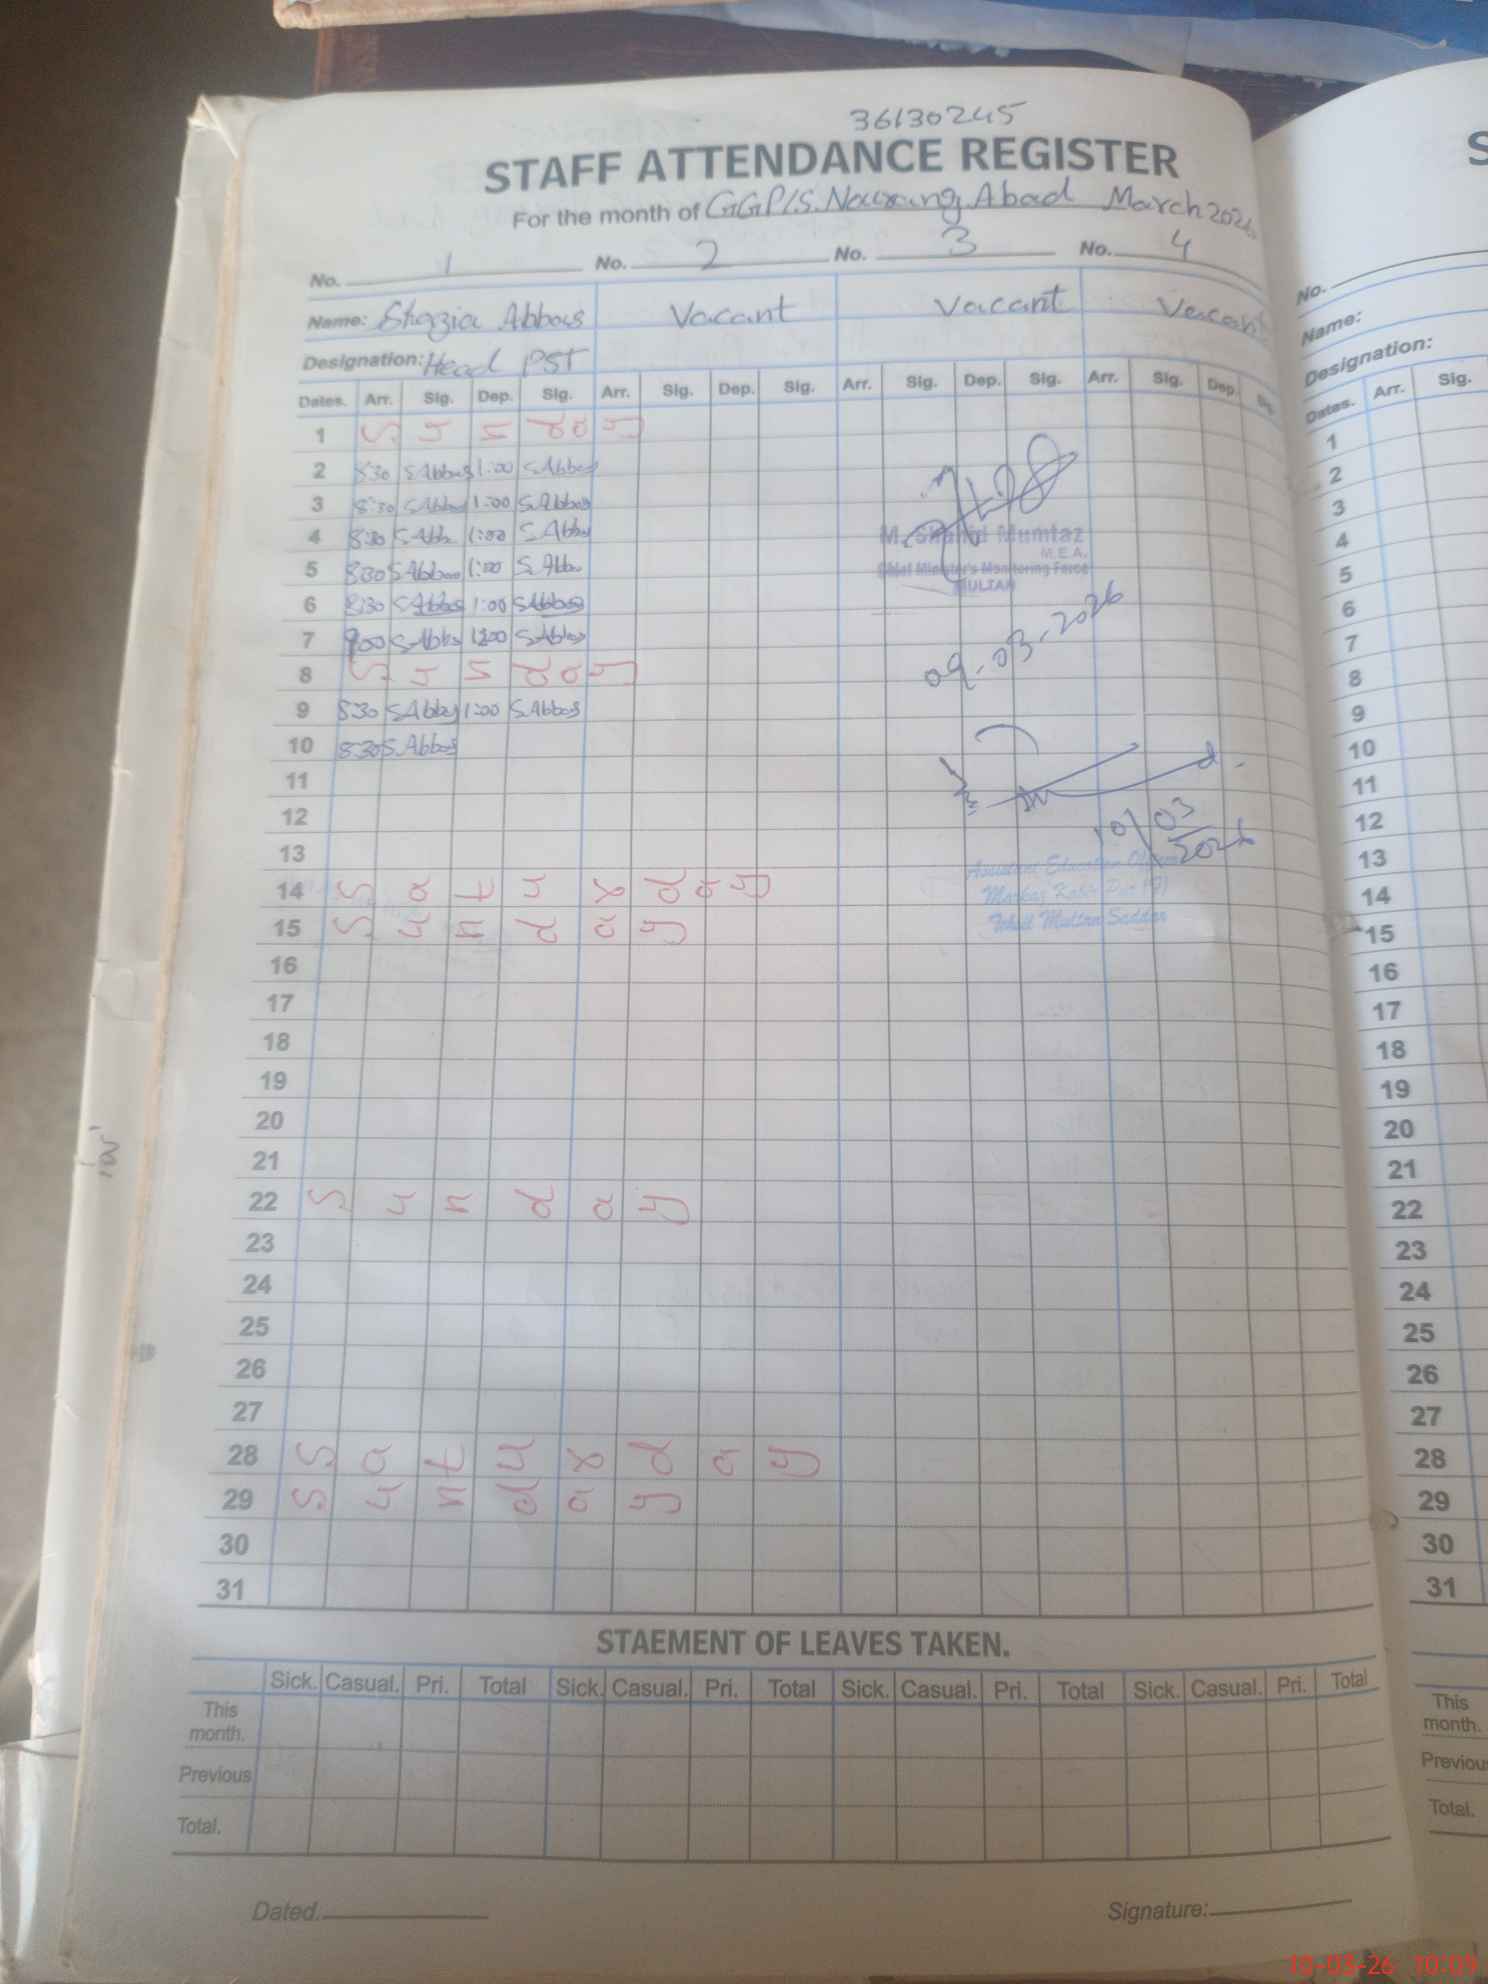 36130245
STAFF ATTENDANCE REGISTER
For the month of GGP/S. Naurang Abad March 2026
No. 1 No. 2 No. 3 No. 4
Name: Shazia Abbas Vacant Vacant Vacant
Designation: Head PST
Dates. Arr. Sig. Dep. Sig. Arr. Sig. Dep. Sig. Arr. Sig. Dep. Sig. Arr. Sig. Dep. Sig.
1 Sunday
2 8:30 S.Abbas 1:00 S.Abbas
3 8:30 S.Abbas 1:00 S.Abbas
4 8:30 S.Abb 1:00 S.Abbas
5 8:30 S.Abbas 1:00 S.Abba
6 8:30 S.Abbas 1:00 S.Abbas
7 9:00 S.Abbas 12:00 S.Abbas
8 Sunday
9 8:30 S.Abbas 1:00 S.Abbas
10 8:30 S.Abbas
M. Shahid Mumtaz
M.E.A.
Chief Minister's Monitoring Force
MULTAN
09-03-2026
11
12
13
10/03
2026
14 Saturday
15 Sunday
Assistant Education Officer
Markaz
Tehsil Multan Saddar
16
17
18
19
20
21
22 Sunday
23
24
25
26
27
28 Saturday
29 Sunday
30
31
STAEMENT OF LEAVES TAKEN.
Sick. Casual. Pri. Total Sick. Casual. Pri. Total Sick. Casual. Pri. Total Sick. Casual. Pri. Total
This
month.
Previous
Total.
Dated. Signature:
S
No.
Name:
Designation:
Dates. Arr. Sig.
1
2
3
4
5
6
7
8
9
10
11
12
13
14
15
16
17
18
19
20
21
22
23
24
25
26
27
28
29
30
31
This
month.
Previous
Total.
10-03-26 10:09